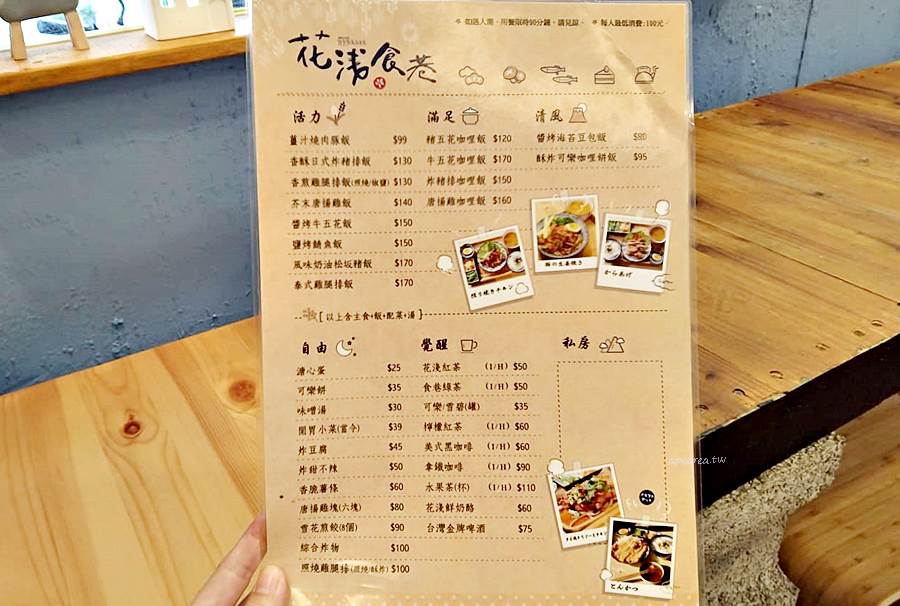 ＊如遇人潮，用餐限時90分鐘，請見諒。 ＊每人最低消費:100元
花淺食巷
活力
薑汁燒肉豚飯 $99
香酥日式炸豬排飯 $130
香煎雞腿排飯(照燒/椒鹽) $130
芥末唐揚雞飯 $140
醬烤牛五花飯 $150
鹽烤鯖魚飯 $150
風味奶油松坂豬飯 $170
泰式雞腿排飯 $170
滿足
豬五花咖哩飯 $120
牛五花咖哩飯 $170
炸豬排咖哩飯 $150
唐揚雞咖哩飯 $160
清風
醬烤海苔豆包飯 $80
酥炸可樂咖哩餅飯 $95
照り焼きチキン
豚の生姜焼き
からあげ
[以上含主食+飯+配菜+湯]
自由
溏心蛋 $25
可樂餅 $35
味噌湯 $30
開胃小菜(當令) $39
炸豆腐 $45
炸甜不辣 $50
香脆薯條 $60
唐揚雞塊(六塊) $80
雪花煎餃(8個) $90
綜合炸物 $100
照燒雞腿排(照燒/酥炸) $100
覺醒
花淺紅茶 (I/H) $50
食巷綠茶 (I/H) $50
可樂/雪碧(罐) $35
檸檬紅茶 (I/H) $60
美式黑咖啡 (I/H) $60
拿鐵咖啡 (I/H) $90
水果茶(杯) (I/H) $110
花淺鮮奶酪 $60
台灣金牌啤酒 $75
私房
とんかつ